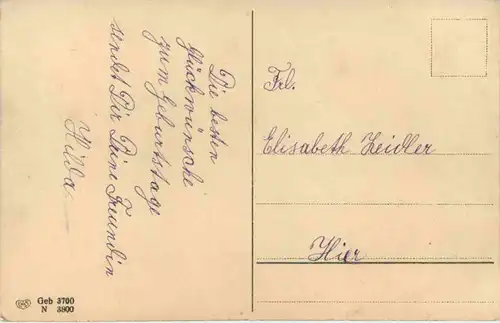 Die besten
Glückwünsche
zum Geburtstage
sendet Dir Deine Freundin
Hilda
Frl.
Elisabeth Zeidler
Hier
Geb 3700
N 3800